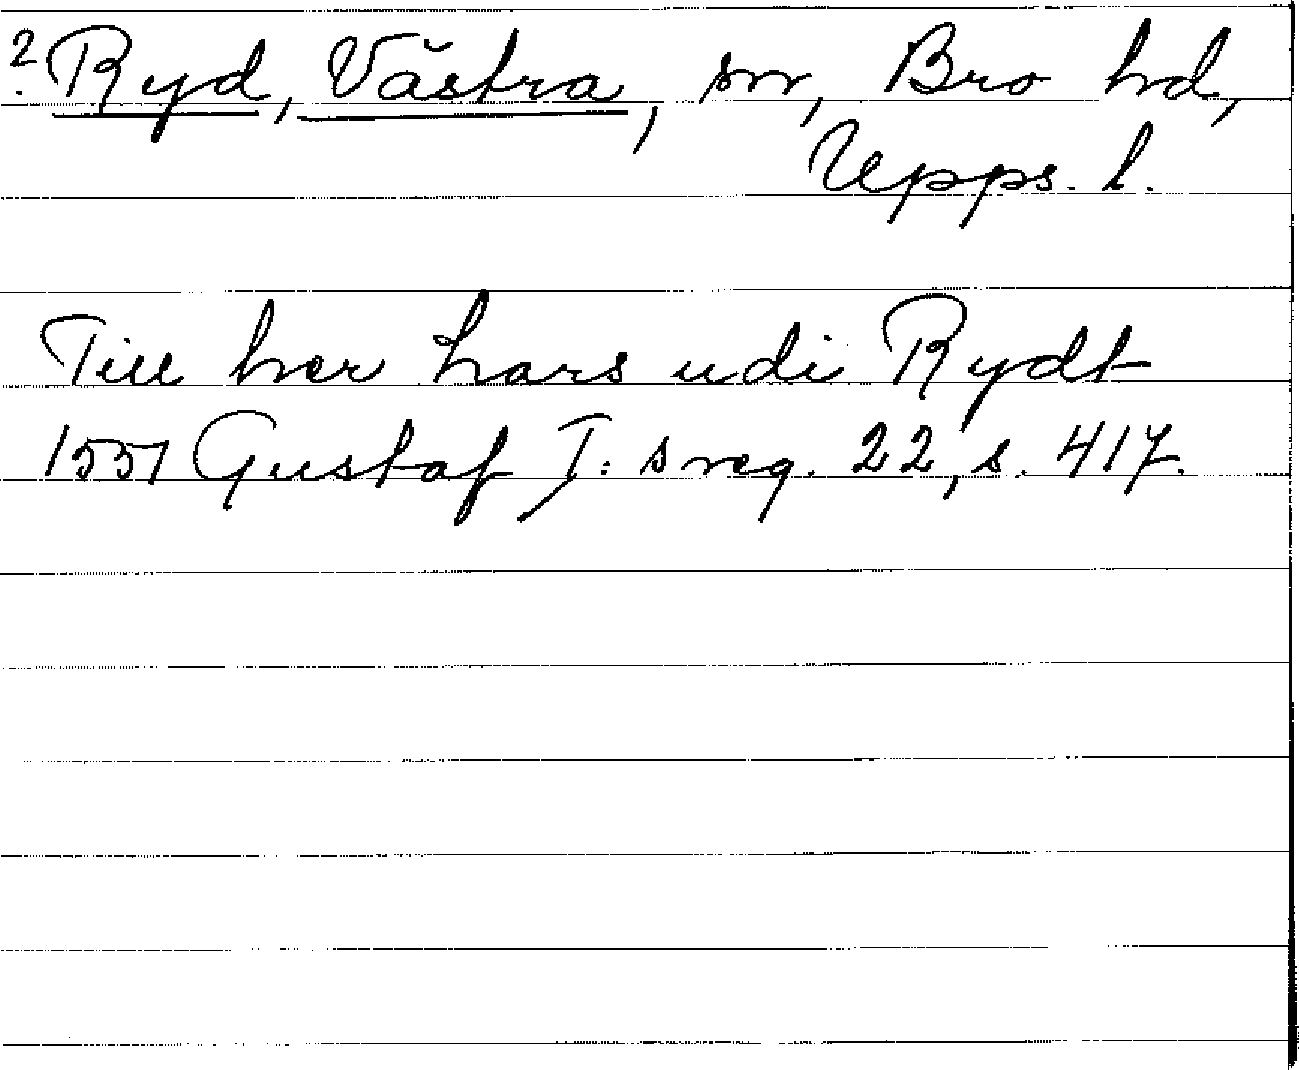 ? Ryd, Västra, sn, Bro hd,
Upps. l.
Till her Lars udi Rydt
1551 Gustaf I: s reg. 22, s. 417.